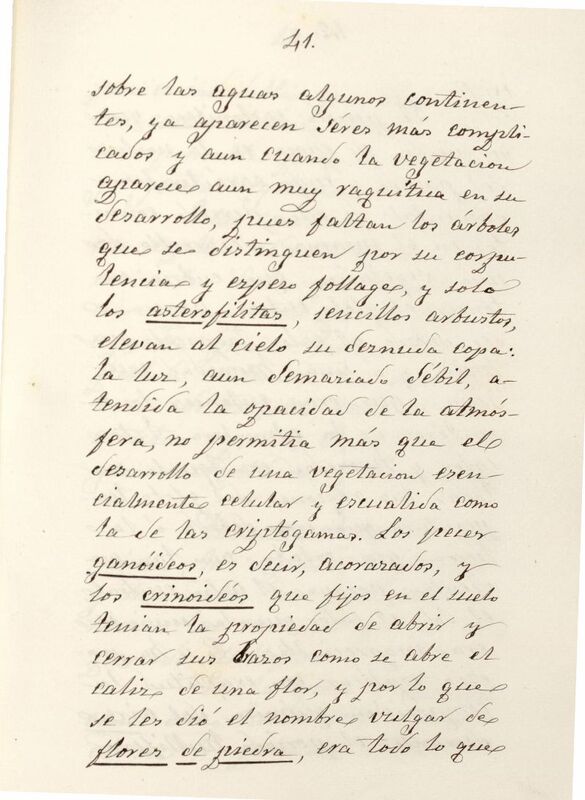 41.
sobre las aguas algunos continen-
tes, ya aparecen séres más compli-
cados y aun cuando la vegetacion
aparece aun muy raquitica en su
desarrollo, pues faltan los árboles
que se distinguen por su corpu-
lencia y espeso follage, y solo
los asterofilitas, sencillos arbustos,
elevan al cielo su desnuda copa:
la luz, aun demasiado débil, a-
tendida la opacidad de la atmós-
fera, no permitia más que el
desarrollo de una vegetacion esen-
cialmente celular y escualida como
la de las criptógamas. Los peces
ganóideos, es decir, acorazados, y
los crinoideós que fijos en el suelo
tenian la propiedad de abrir y
cerrar sus bazos como se abre el
caliz de una flor, y por lo que
se les dió el nombre vulgar de
flores de piedra, era todo lo que